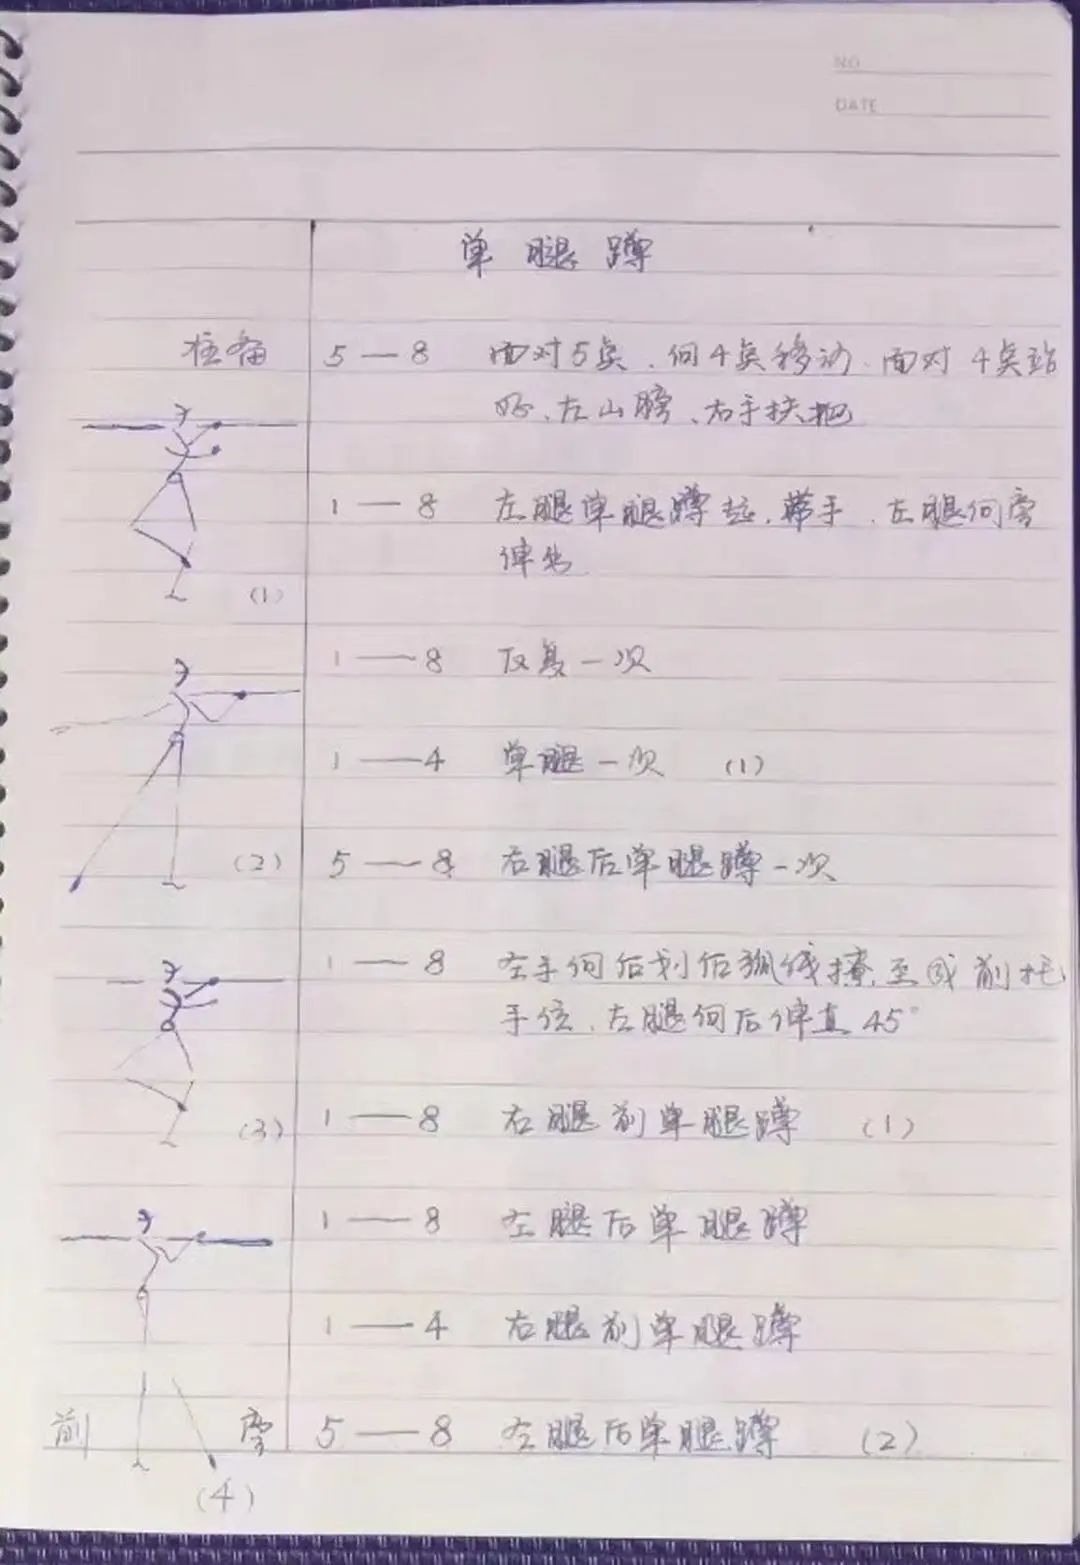 NO
DATE
单腿蹲
准备 5—8 面对5点、向4点移动、面对4点站
好、左山膀、右手扶把
1—8 左腿单腿蹲 带手、左腿向旁
伸出
(1)
1—8 反复一次
1—4 单腿一次 (1)
(2) 5—8 右腿后单腿蹲一次
1—8 左手向后划后弧线撩至 前托
手位、左腿向后伸直45°
(3) 1—8 右腿前单腿蹲 (1)
1—8 左腿后单腿蹲
1—4 右腿前单腿蹲
前 旁 5—8 左腿后单腿蹲 (2)
(4)